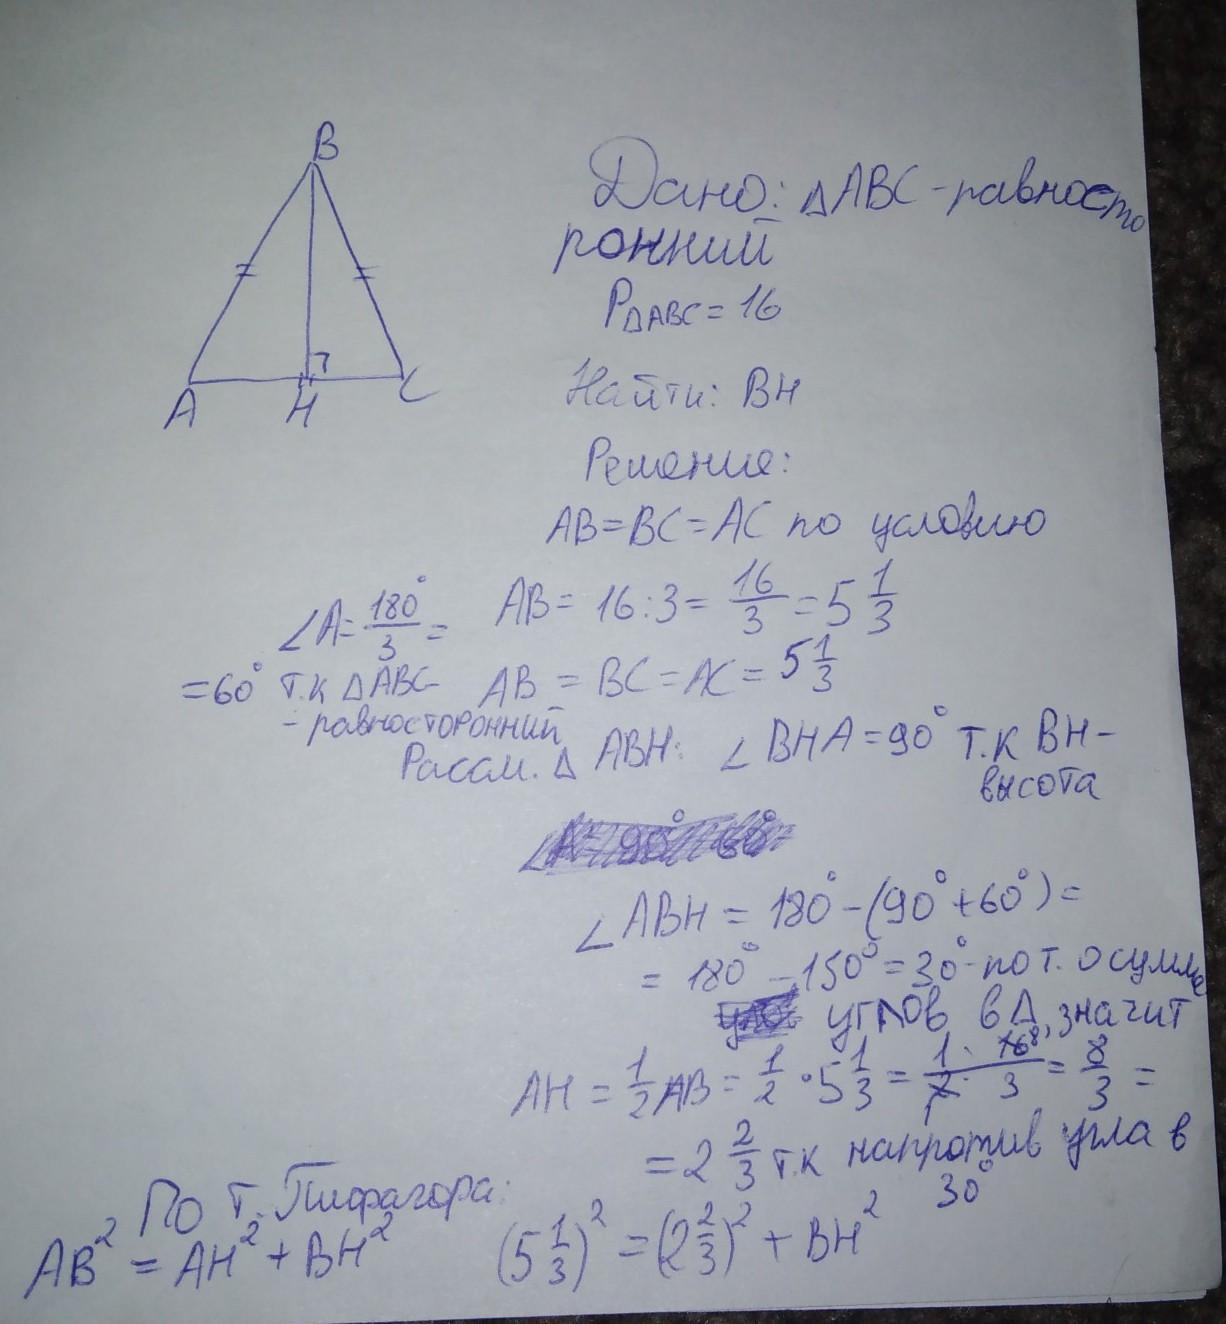 B
A H C
Дано: △ABC - равносто
ронний
P△ABC = 16
Найти: BH
Решение:
AB = BC = AC по условию
∠A = 180°/3 =
= 60° т.к △ABC
- равносторонний
AB = 16 : 3 = 16/3 = 5 1/3
AB = BC = AC = 5 1/3
Рассм. △ ABH: ∠BHA = 90° т.к BH -
высота
∠ABH = 180° - (90° + 60°) =
= 180° - 150° = 30° - по т. о сумме
углов в △, значит
AH = 1/2 AB = 1/2 · 5 1/3 = 1 · 16 8 / 2 1 · 3 = 8/3 =
= 2 2/3 т.к напротив угла в
30°
По т. Пифагора:
AB² = AH² + BH² (5 1/3)² = (2 2/3)² + BH²